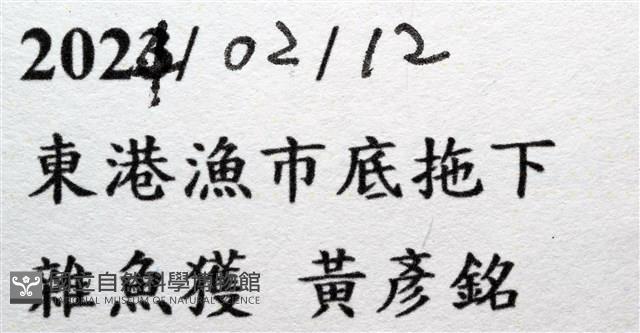 2024/02/12
東港漁市底拖下
雜魚獲 黃彥銘
國立自然科學博物館
NATIONAL MUSEUM OF NATURAL SCIENCE